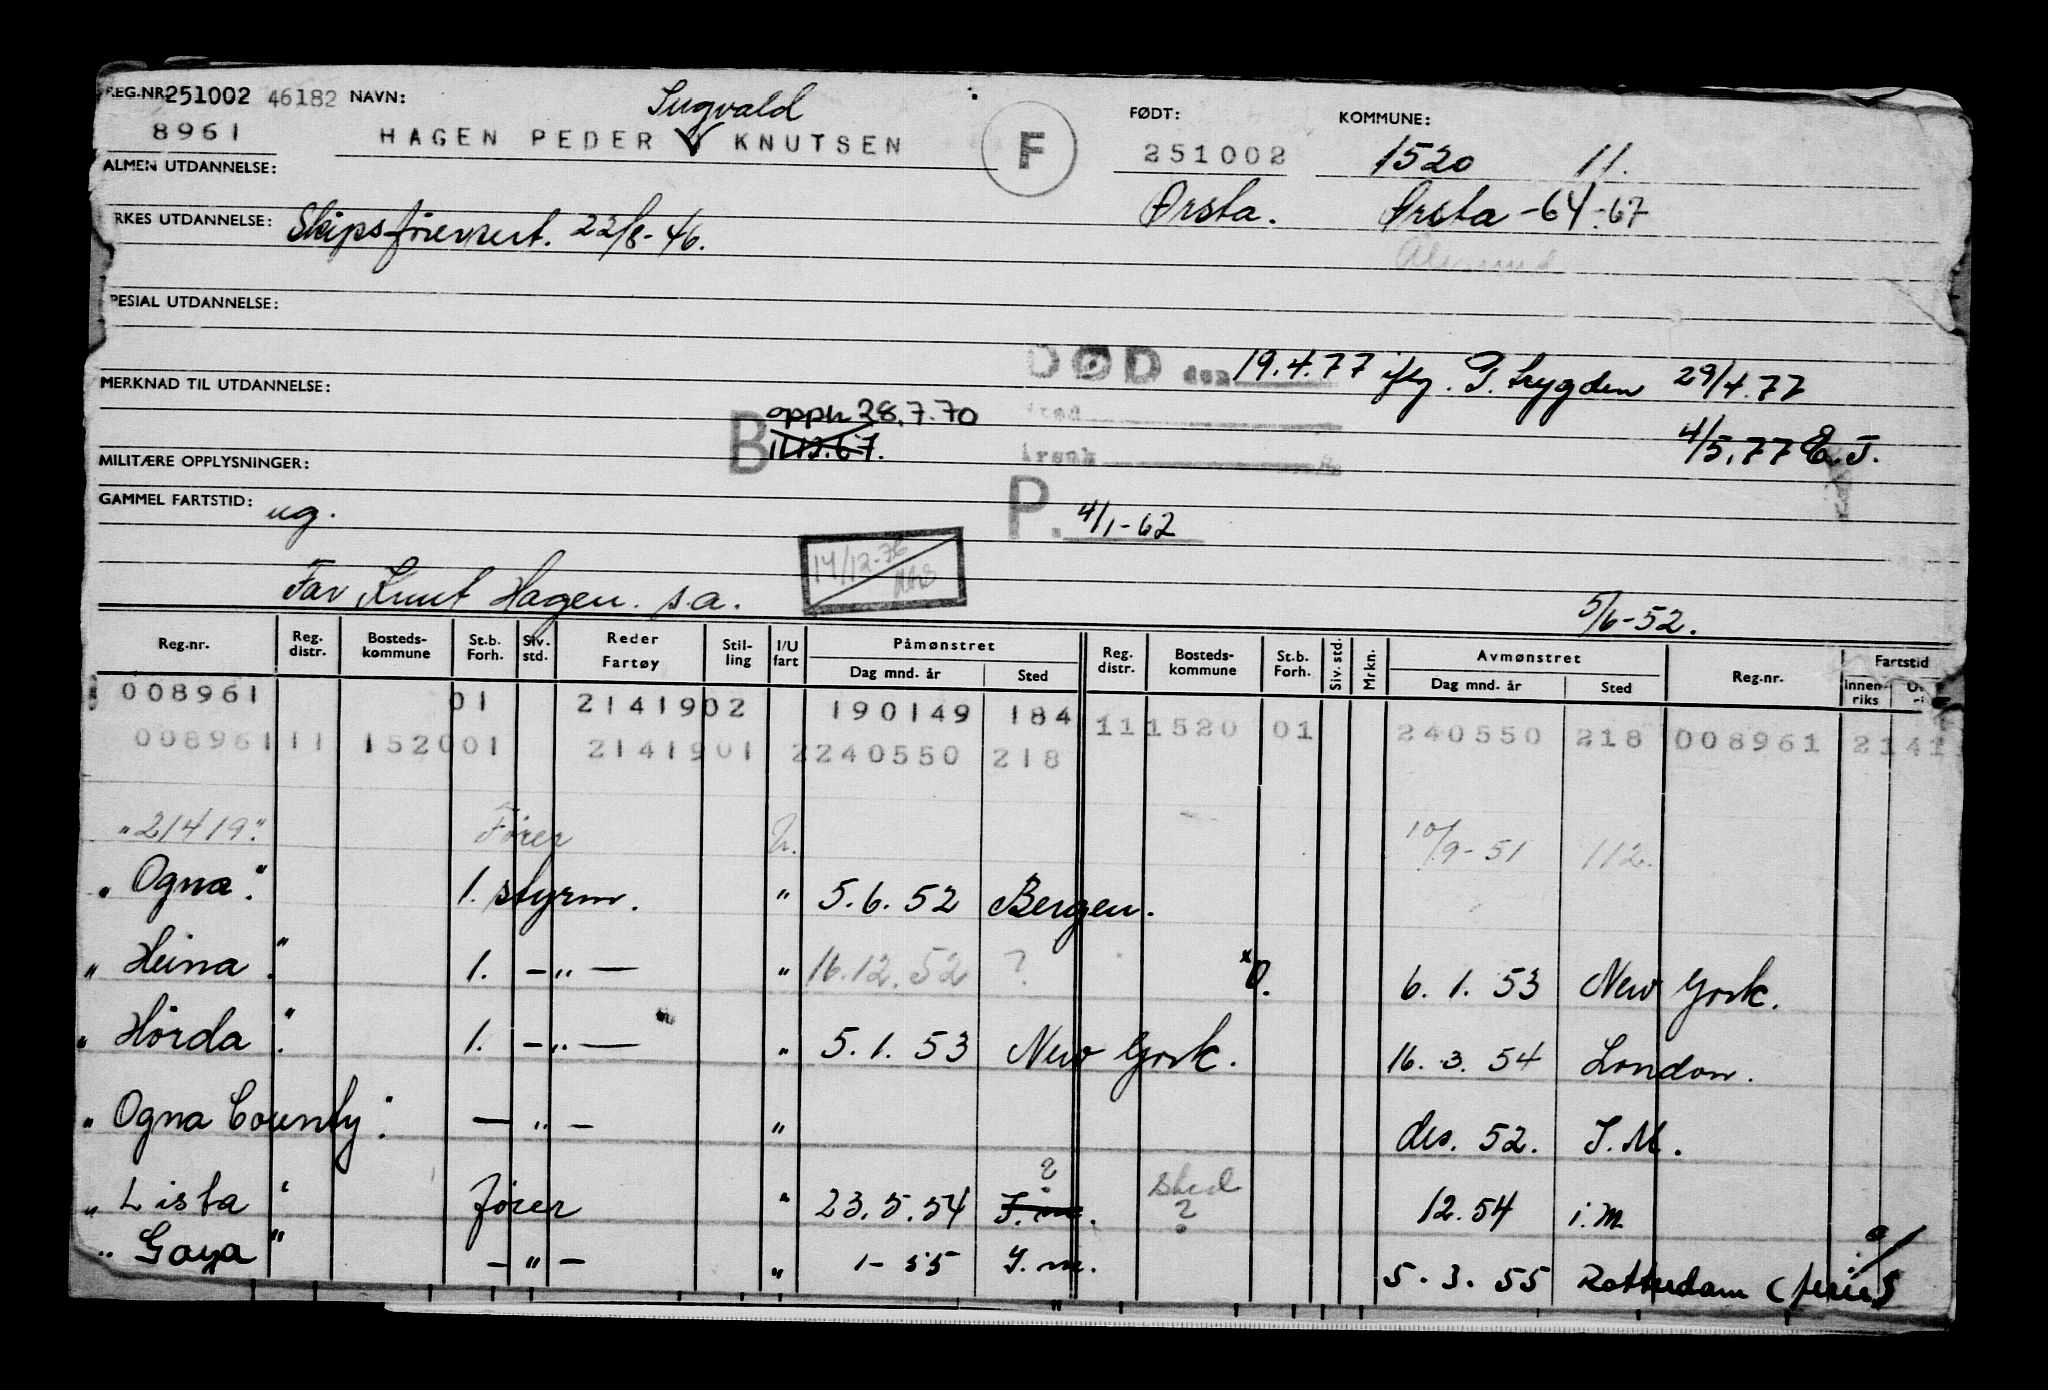 REG.NR 251002 46182 NAVN: Ingvald FØDT: KOMMUNE:
8961 HAGEN PEDER V KNUTSEN F 251002 1520 11.
ALMEN UTDANNELSE: Ørsta. Ørsta -64-67
RKES UTDANNELSE: Skipsförersert. 22/8-46. Ålesund
PESIAL UTDANNELSE:
DØD den 19.4.77 ifly. P. trygden 29/4.77
MERKNAD TIL UTDANNELSE:
B opph 28.7.70 sted
11.12.67. årsak 4/5.77 E.J.
MILITÆRE OPPLYSNINGER:
GAMMEL FARTSTID: ug. P. 4/1-62
14/12-76
Far Knut Hagen. s.a. 5/6-52.
Reg.nr. Reg. distr. Bosteds-kommune St.b. Forh. Siv. std. Reder Fartøy Stil-ling I/U fart Påmønstret Dag mnd. år Sted Reg. distr. Bosteds-kommune St.b. Forh. Siv. std. Mrkn. Avmønstret Dag mnd. år Sted Reg.nr. Fartstid Innen-riks
008961 01 2141902 190149 184
111520 01 240550 218 008961 2141
008961 11 152001 2141901 2240550 218
"21419". Fører U. 10/9-51 112.
"Ogna". 1. styrm. " 5.6.52 Bergen.
"Heina". 1. -"- " 16.12.52 ? x O. 6.1.53 New York.
"Hörda". 1. -"- " 5.1.53 New York. 16.3.54 London.
"Ogna County". -"- " des. 52. I.M.
"Lista" fører " 23.5.54 I.m. ? sted ? 12.54 i.m
"Goya" -"- " 1-55 I.m. 5.3.55 Rotterdam (ferie)